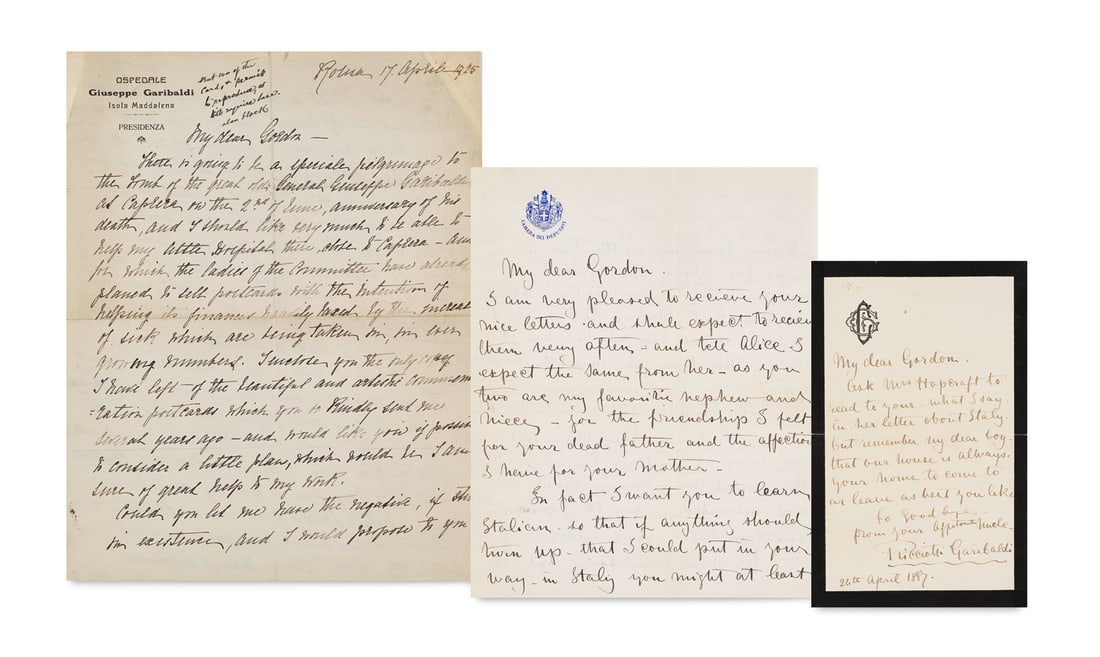 OSPEDALE
Giuseppe Garibaldi
Isola Maddalena
PRESIDENZA
Roma 17 Aprile 1925
My dear Gordon —
There is going to be a speciale pilgrimage to
the Tomb of the great old General Giuseppe Garibaldi
at Caprera on the 2nd of June, anniversary of his
death, and I should like very much to be able to
help my little Hospital there, close to Caprera — and
for which the ladies of the Committee have already
planed to sell postcards with the intention of
helping its finances heavily taxed by the increase
of sick which are being taken in, in ever
growing numbers. I enclose you the only copy
I have left of the beautiful and artistic commemo
=ration postcards which you so Kindly sent me
several years ago — and would like you if possible
to consider a little plan, which would be I am
sure of great help to my work.
Could you let me have the negative, if still
in existence, and I would propose to you
CAMERA DEI DEPUTATI
My dear Gordon.
I am very pleased to recieve your
nice letters - and shall expect to reciev
them very often - and tell Alice I
expect the same from her - as you
two are my favorite nephew and
niece - for the friendship I felt
for your dead father and the affection
I have for your mother -
In fact I want you to learn
Italian - so that if anything should
turn up - that I could put in your
way - in Italy you might at least
GG
My dear Gordon.
Ask Mrs Hapcraft to
read to your - what I say
in her letter about Italy
but remember my dear boy -
that our house is always
your home to come to
or leave as best you like
So Good bye -
from your affectionate Uncle
Ricciotti Garibaldi
24th April 1887.